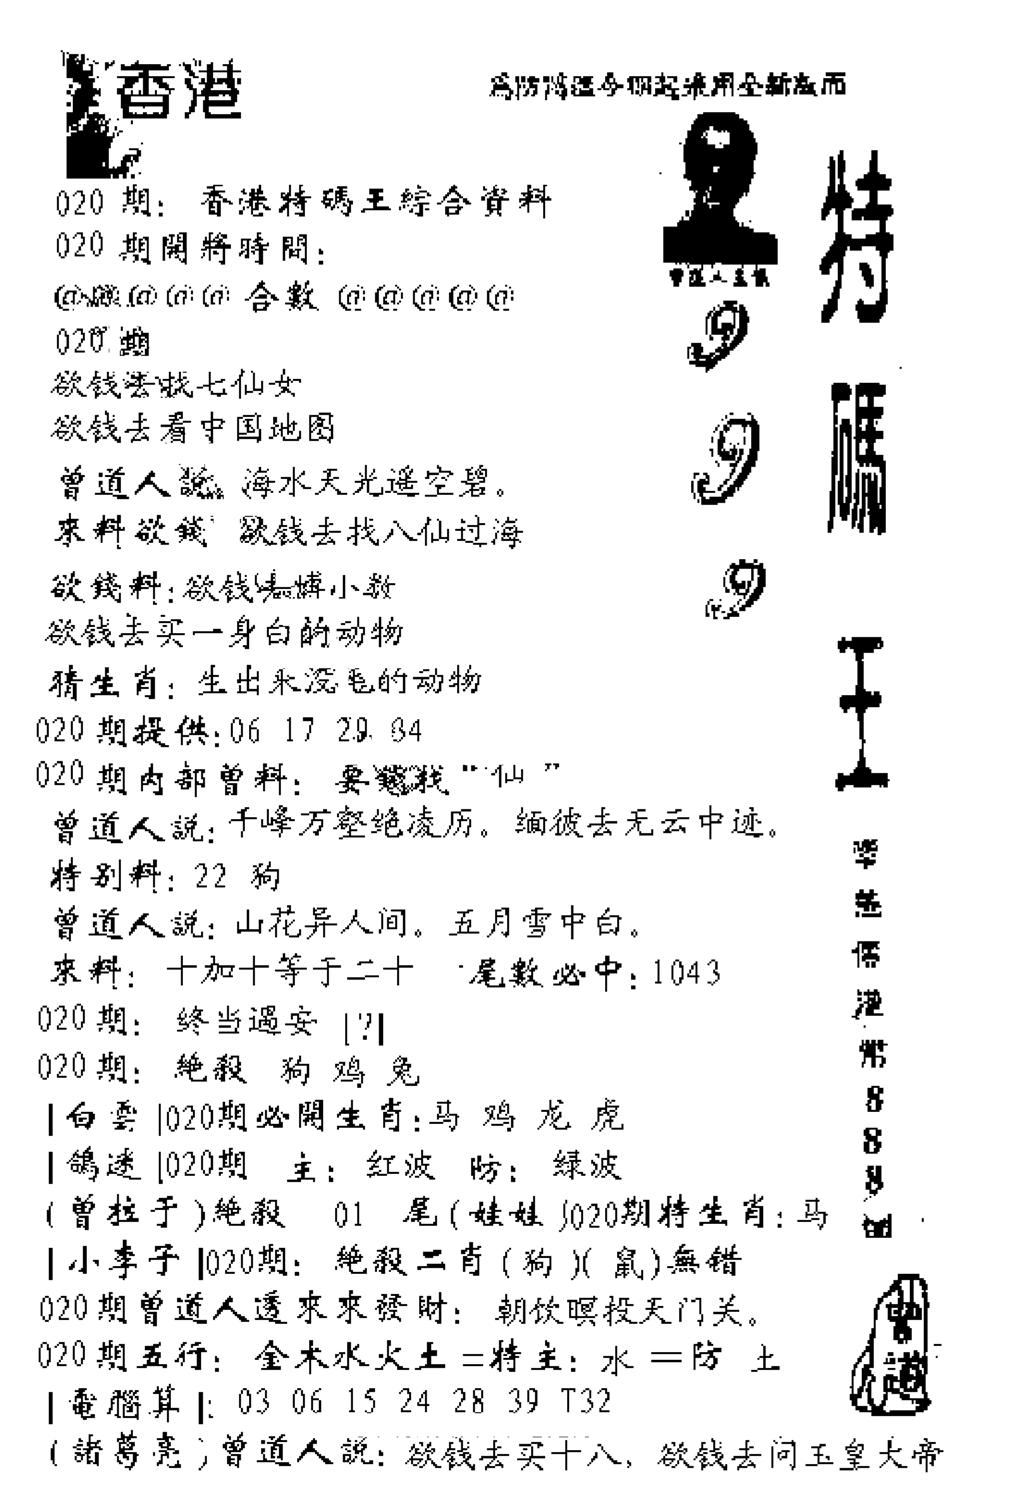 香港
020 期: 香港特碼王綜合資料
020 期開將時間:
@@@@ 合數 @@@@@
020 期
欲钱去找七仙女
欲钱去看中国地图
曾道人說 海水天光遥空碧。
來料欲錢 欲钱去找八仙过海
欲錢料: 欲钱 小数
欲钱去买一身白的动物
猜生肖: 生出来没毛的动物
020 期提供: 06 17 29 04
020 期内部曾料: 要 找 "仙"
曾道人説: 千峰万壑绝凌历。 缅彼去无云中迹。
特别料: 22 狗
曾道人説: 山花异人间。 五月雪中白。
來料: 十加十等于二十 尾數必中: 1043
020 期: 终当遇安 |?|
020 期: 絶殺 狗 鸡 兔
|白雲|020期必開生肖: 马 鸡 龙 虎
|鴿迷|020期 主: 红波 防: 绿波
(曾拉于)絶殺 01 尾 (娃娃)020期特生肖: 马
|小李子|020期: 絶殺二肖 (狗)(鼠)無错
020 期曾道人透來來發財: 朝饮暝投天门关。
020 期五行: 金木水火土 =特主: 水 =防 土
|電腦算|: 03 06 15 24 28 39 T32
(諸葛亮)曾道人説: 欲钱去买十八, 欲钱去问玉皇大帝
為防 今期起采用全新版面
曾道人主
9
9
9
特碼王
港幣888
曾道